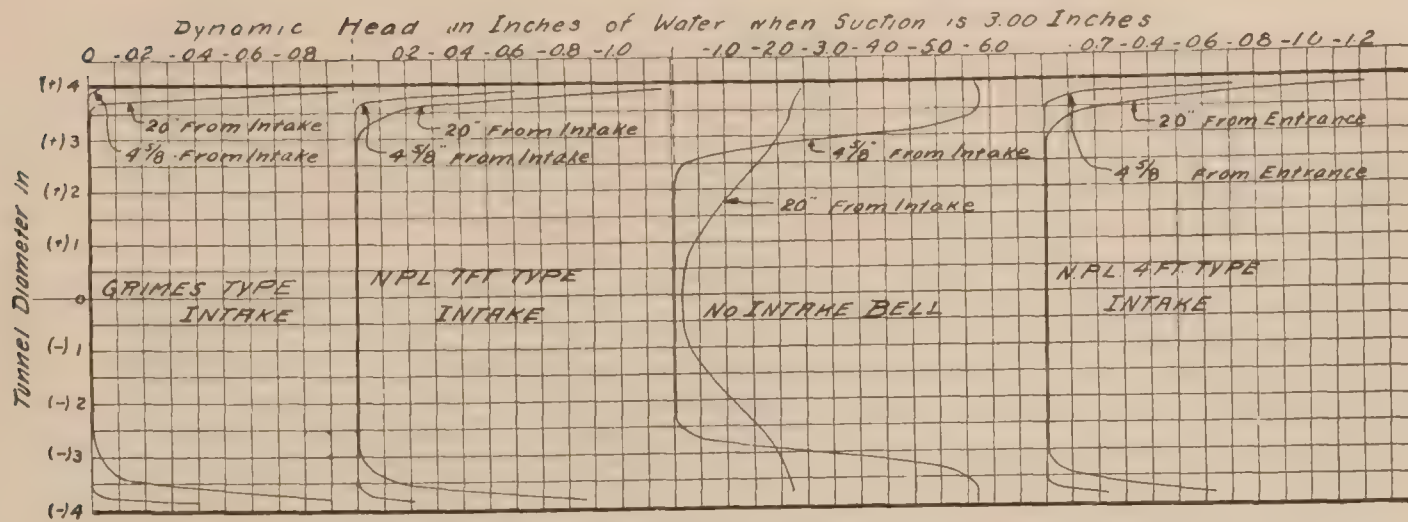 Dynamic Head in Inches of Water when Suction is 3.00 Inches
0 -.02 -.04 -.06 -.08
02 -.04 -.06 -.08 -1.0
-1.0 -2.0 -3.0 -4.0 -5.0 -6.0
0.7 -0.4 -.06 -.08 -1.0 -1.2
Tunnel Diameter in
(+) 4
(+) 3
(+) 2
(+) 1
0
(-) 1
(-) 2
(-) 3
(-) 4
20" From Intake
4 5/8 From Intake
GRIMES TYPE
INTAKE
20" From Intake
4 5/8" From Intake
NPL 7FT TYPE
INTAKE
4 5/8" From Intake
20" From Intake
NO INTAKE BELL
20" From Entrance
4 5/8 From Entrance
N.P.L. 4FT. TYPE
INTAKE